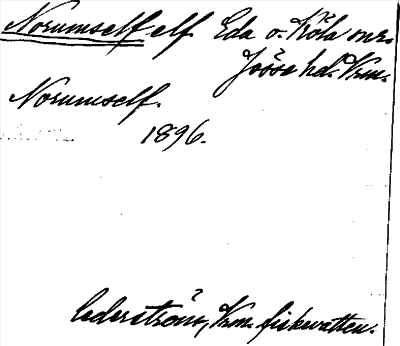 Norumself elf Eda o. Köla snr.
Jösse hd. Vrm.
Norumself.
1896.
Cederström, Vrm. fiskevatten.